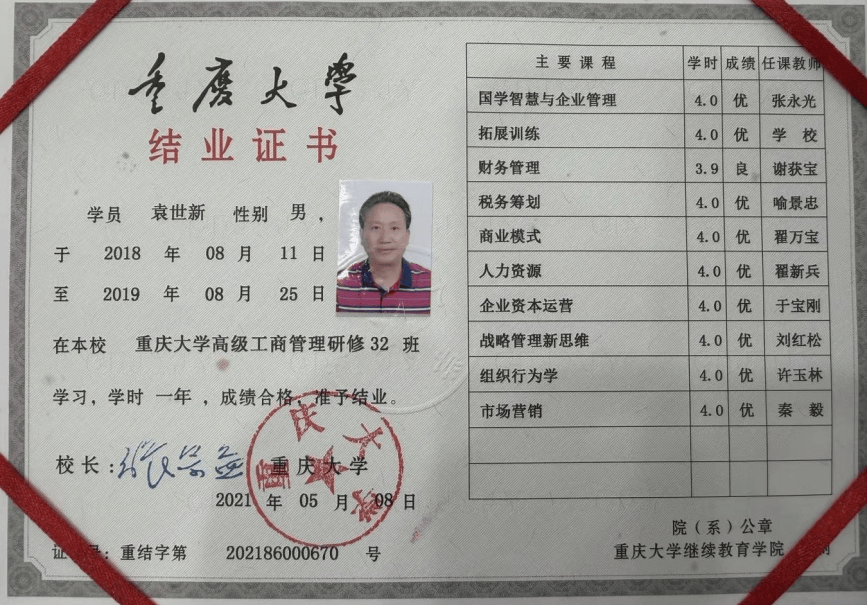 重庆大学
结业证书
学员 袁世新 性别 男，
于 2018 年 08 月 11 日
至 2019 年 08 月 25 日
在本校 重庆大学高级工商管理研修 32 班
学习，学时 一年 ，成绩合格，准予结业。
校长：
重庆大学
2021 年 05 月 08 日
重结字第 202186000670 号
重庆大学
主要课程 学时 成绩 任课教师
国学智慧与企业管理 4.0 优 张永光
拓展训练 4.0 优 学 校
财务管理 3.9 良 谢获宝
税务筹划 4.0 优 喻景忠
商业模式 4.0 优 翟万宝
人力资源 4.0 优 翟新兵
企业资本运营 4.0 优 于宝刚
战略管理新思维 4.0 优 刘红松
组织行为学 4.0 优 许玉林
市场营销 4.0 优 秦 毅
院（系）公章
重庆大学继续教育学院